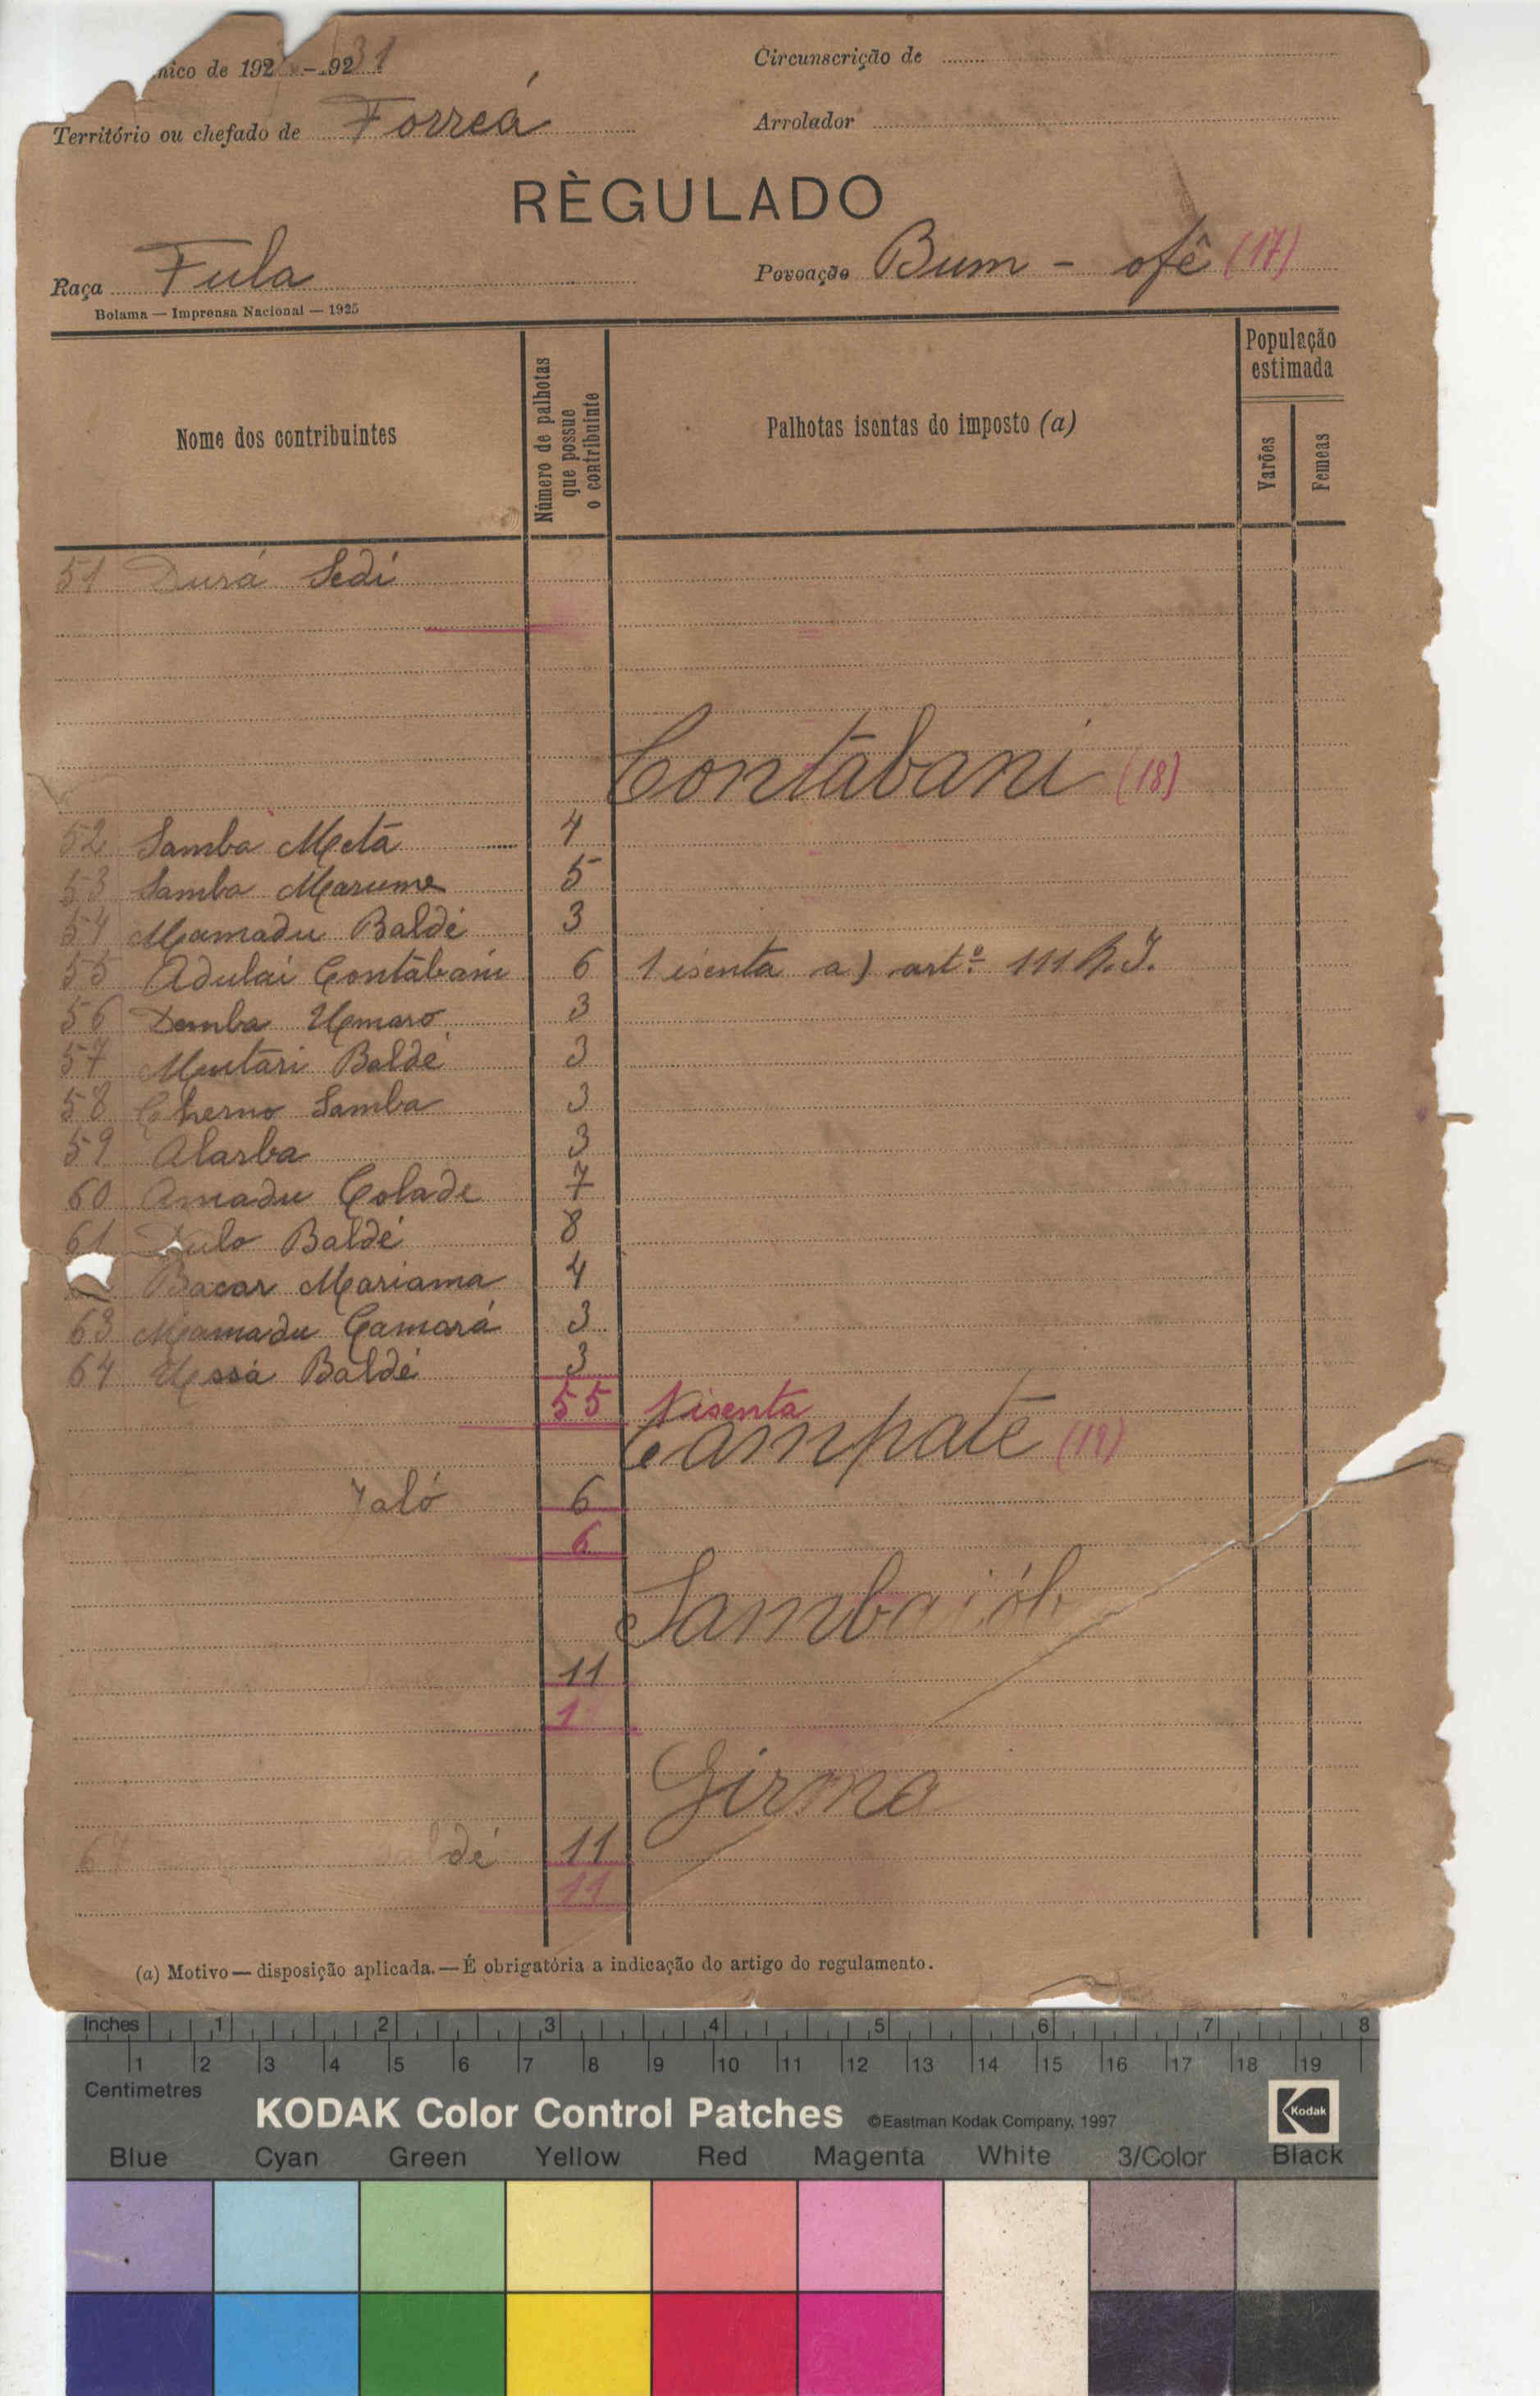 nico de 192 - 1931
Circunscrição de
Território ou chefado de Forreá
Arrolador
RÈGULADO
Raça Fula
Povoação Bum - ofê (17)
Bolama — Imprensa Nacional — 1925
Nome dos contribuintes
Número de palhotas que possue o contribuinte
Palhotas isentas do imposto (a)
População estimada
Varões
Femeas
51 Durá Sedi
Contabani (18)
52 Samba Meta 4
53 Samba Marume 5
54 Mamadu Baldé 3
55 Adulai Contabani 6 1 isenta a) artº 111 R.I.
56 Demba Umaro 3
57 Mutari Baldé 3
58 Cherno Samba 3
59 Alarba 3
60 Amadu Colade 7
61 Dulo Baldé 8
Bacar Mariama 4
63 Mamadu Camará 3
64 Ussá Baldé 3
55 1 isenta
Campate (19)
Jaló 6
6
Samba
11
1
Girma
67 dé 11
11
(a) Motivo — disposição aplicada. — É obrigatória a indicação do artigo do regulamento.
Inches 1 2 3 4 5 6 7 8
1 2 3 4 5 6 7 8 9 10 11 12 13 14 15 16 17 18 19
Centimetres
KODAK Color Control Patches ©Eastman Kodak Company, 1997 Kodak
Blue Cyan Green Yellow Red Magenta White 3/Color Black